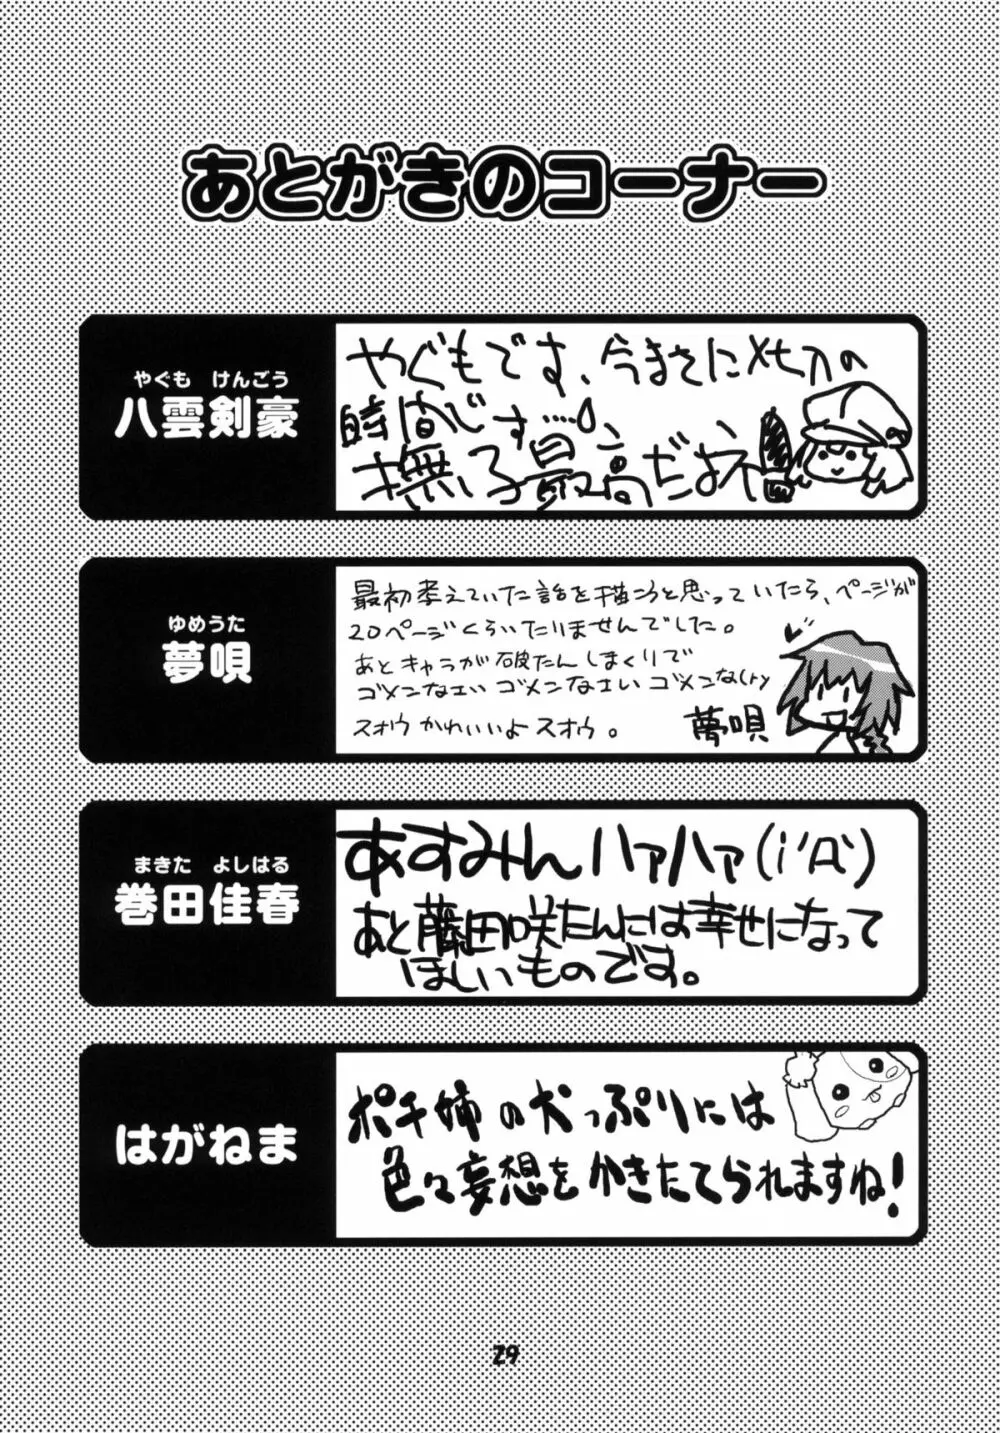 あとがきのコーナー
やぐも けんごう
八雲剣豪
やぐもです、今まさに〆切の
時間です…。
撫子最高だよおー
ゆめうた
夢唄
最初考えていた話を描こうと思っていたら、ページが
20ページくらいたりませんでした。
あとキャラが破たんしまくりで
ゴメンなさい ゴメンなさい ゴメンなし(ry
スオウかわいいよスオウ。
夢唄
まきた よしはる
巻田佳春
あすみんハァハァ(;´Д`)
あと藤田咲たんには幸せになって
ほしいものです。
はがねま
ポチ姉の犬っぷりには
色々妄想をかきたてられますね!
29